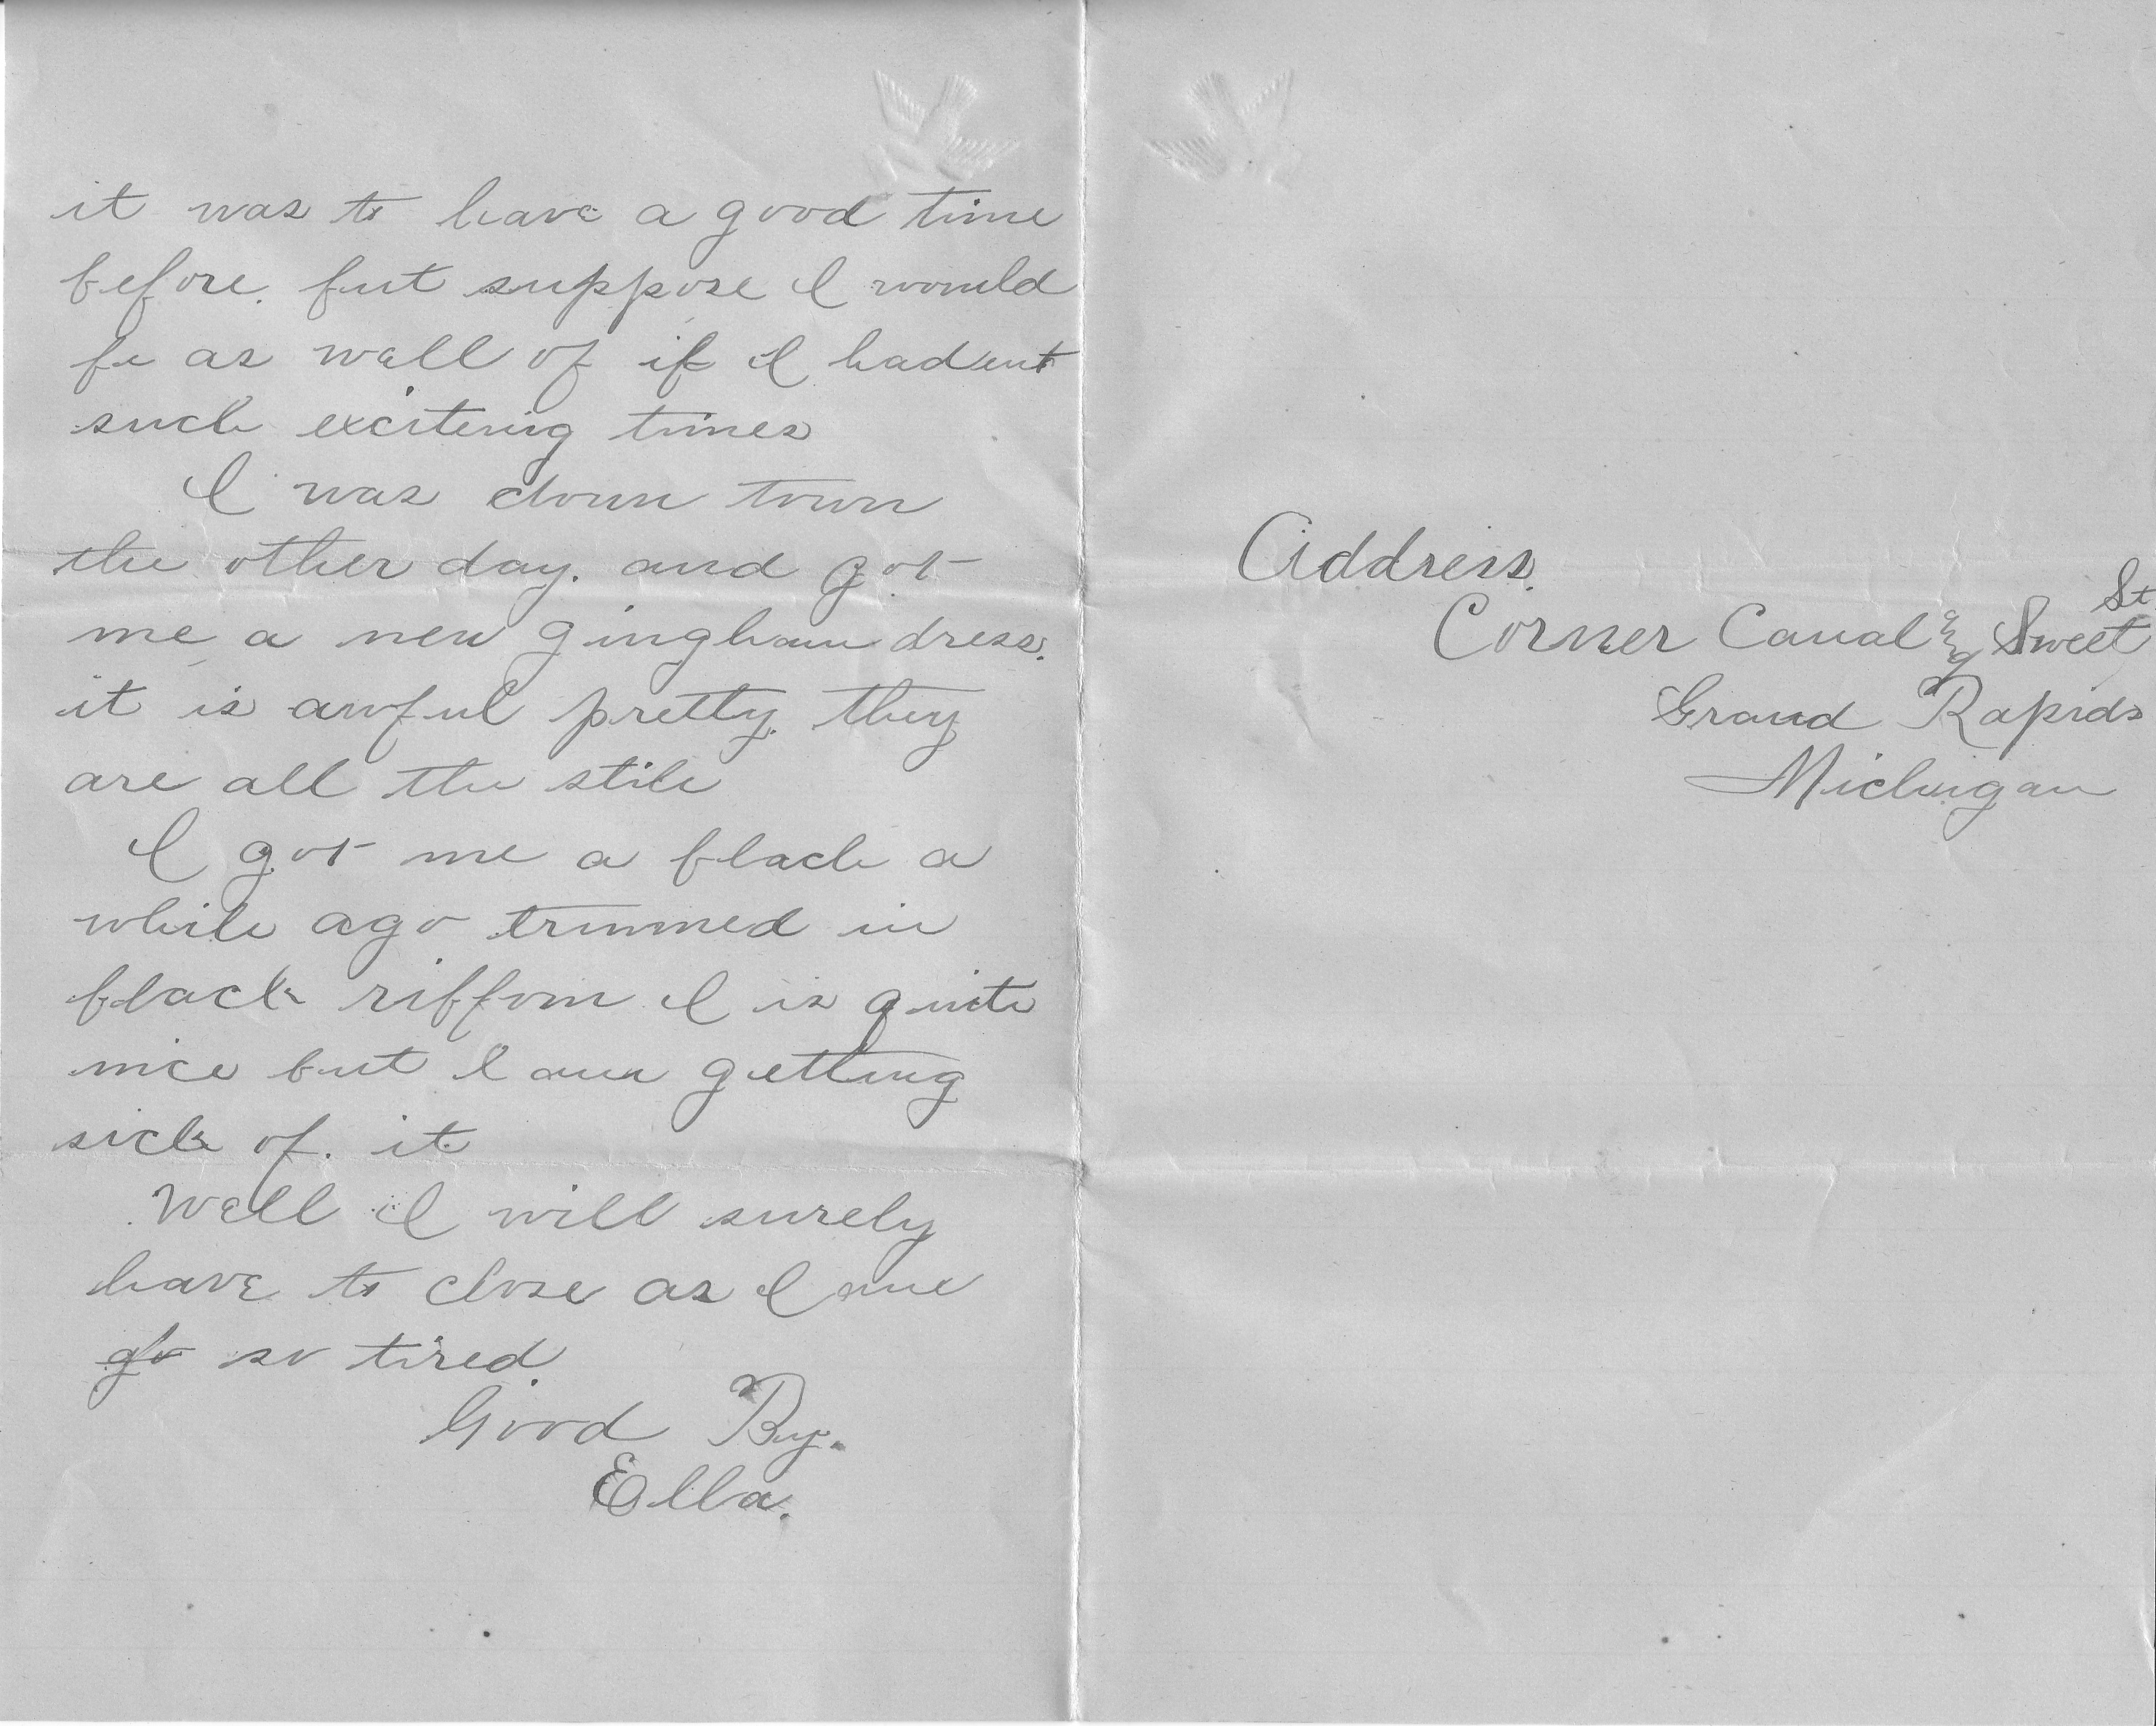 it was to have a good time
before. but suppose I would
be as well of if I hadent
such excitering times
I was down town
the other day. and got
me a new gingham dress.
it is awful pretty. they
are all the stile
I got me a black a
while ago trimmed in
black ribbom I is quite
nice but I am getting
sick of. it
Well I will surely
have to close as I am
go so tired.
Good By.
Ella.
Address.
Corner Canal and Sweet St
Grand Rapids
Michigan